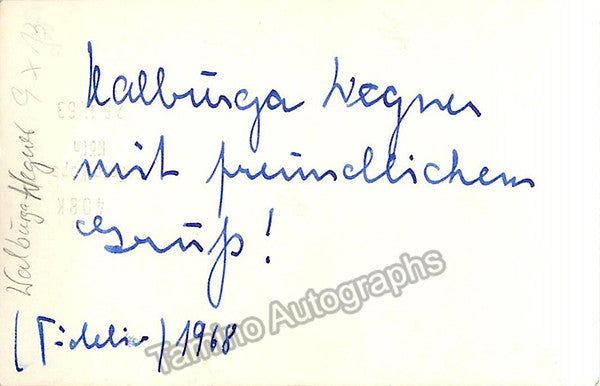 Walburga Wegner
mit freundlichem
Gruß!
(Fidelio) 1968
Walburga Wegner 9 x 13
Tamino Autographs
KÖLN